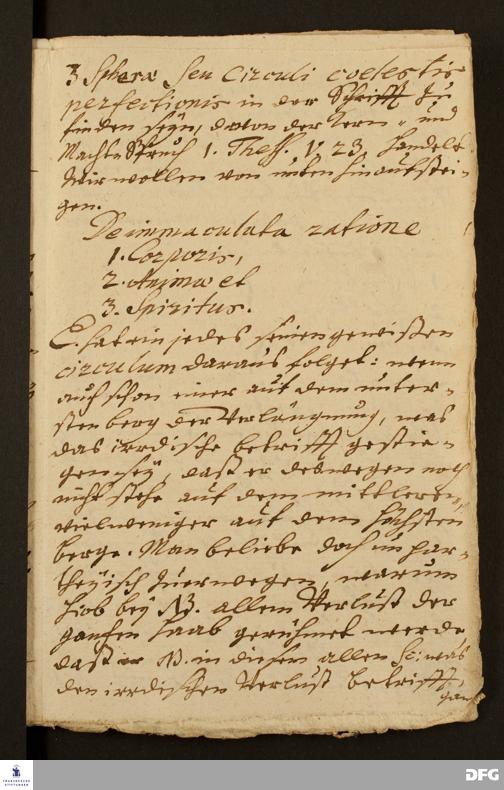 3 Sphæræ seu Circuli coelestis
perfectionis in der Schrifft zu
finden seyn, davon der Kern- und
Macht-Spruch 1. Thess. V. 23. handelt
Wir wollen von unten hinauf stei-
gen.
De immaculata ratione
1. Corporis,
2. Animæ et
3. Spiritus.
E. hat ein jedes seinen gewissen
circulum daraus folget: wenn
auch schon einer auf dem unter-
sten berg der Verläugnung, was
das irrdische betrifft gestie-
gen sey, daß er deswegen noch
nicht stehe auf dem mittleren,
vielweniger auf dem höchsten
berge. Man beliebe doch unpar-
theyisch zuerwegen, warum
Hiob bey NB. allem Verlust der
gantzen Haab gerühmet werde
daß er NB. in diesem allen sc: was
den irrdischen Verlust betrifft,
gantz
DFG